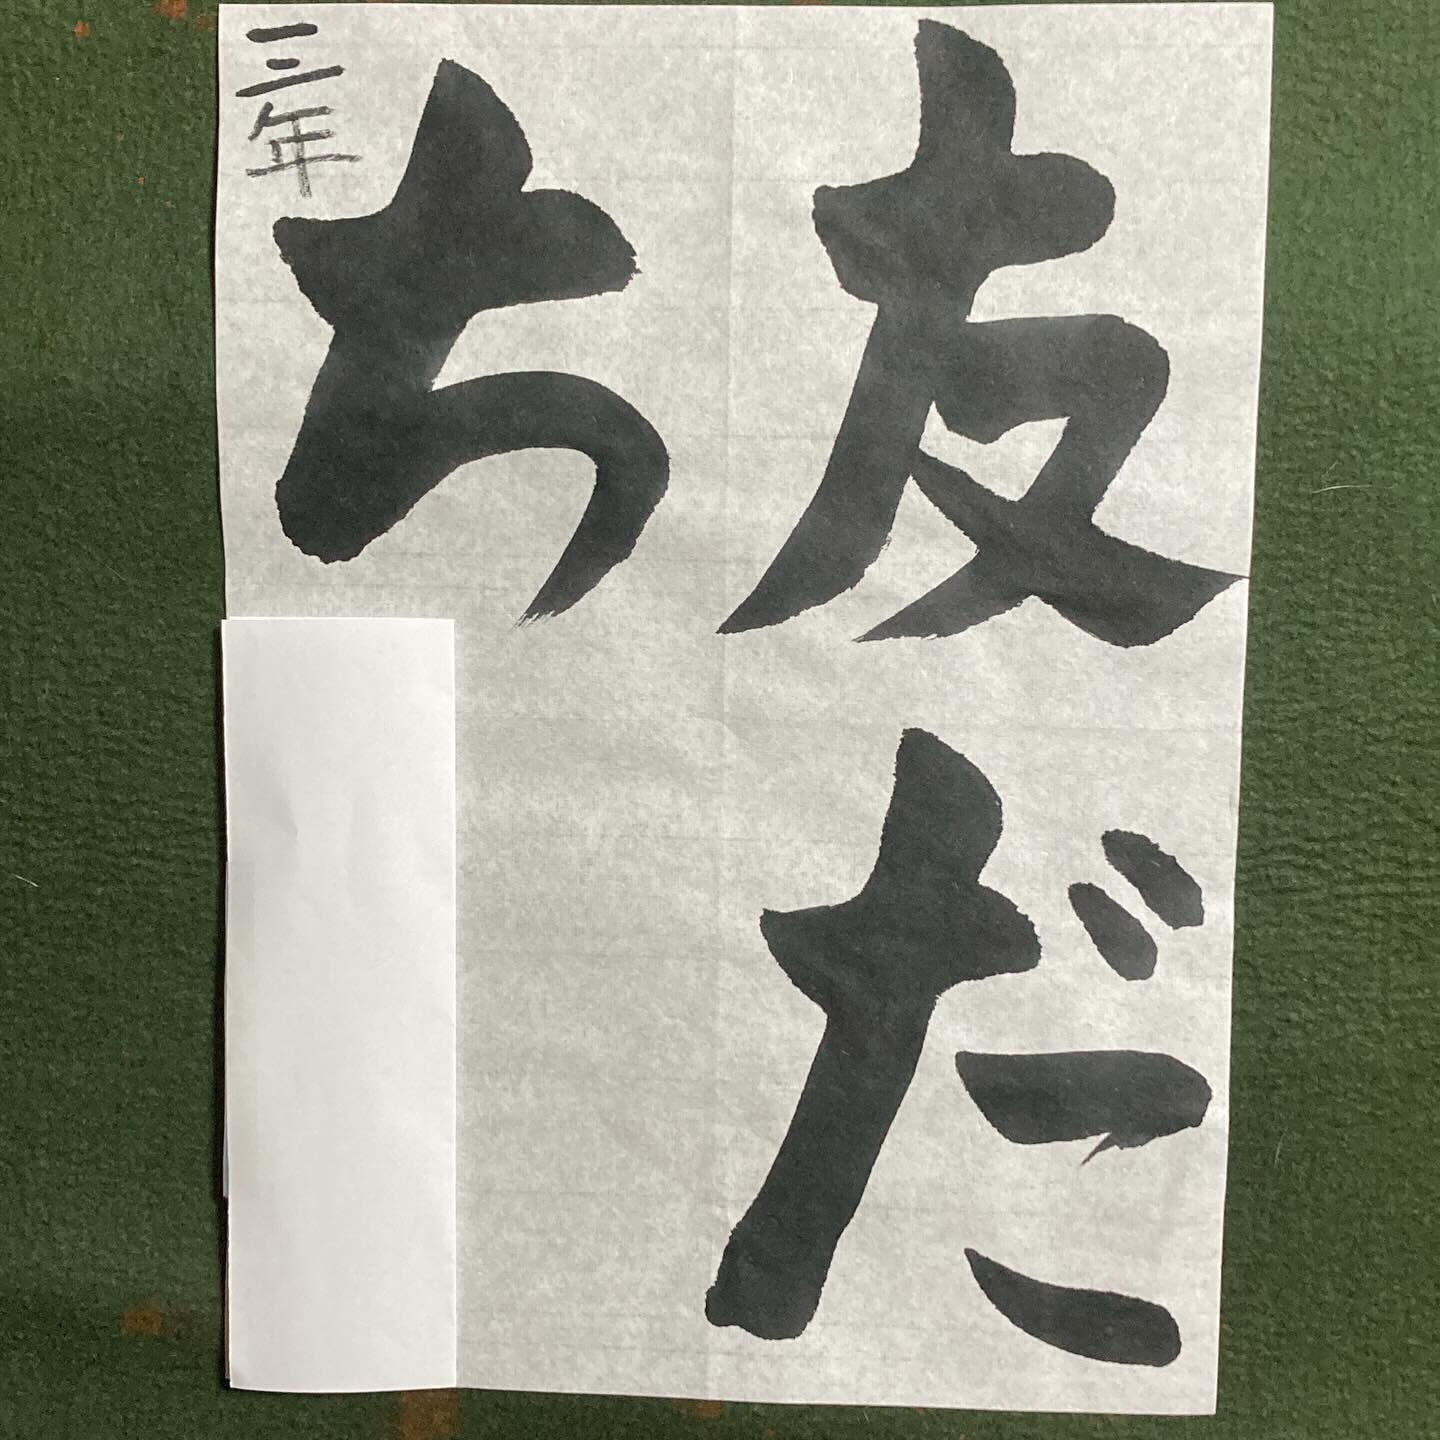 友だ
ち
三年